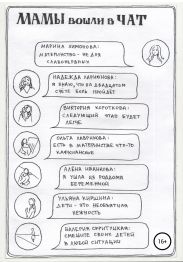 МАМЫ ВОШЛИ В ЧАТ
МАРИНА
МАТЕРИНСТВО - НЕ ДЛЯ
СЛАБОНЕРВНЫХ
НАДЕЖДА ЛАРИОНОВА:
Я ЗНАЮ, ЧТО НА ДВАДЦАТОМ
СЧЁТЕ БОЛЬ ПРОЙДЁТ
ВИКТОРИЯ КОРОТКОВА:
СЛЕДУЮЩИЙ ЭТАП БУДЕТ
ЛЕГЧЕ
ОЛЬГА ЛАВРИМОВА:
ЕСТЬ В МАТЕРИНСТВЕ ЧТО-ТО
КАФКИАНСКОЕ
АЛЁНА ИВАНКОВА:
Я УШЛА ИЗ РОДДОМА
БЕРЕМЕННОЙ
УЛЬЯНА КИРШИНА:
ДЕТИ - ЭТО НЕОБЪЯТНАЯ
НЕЖНОСТЬ
ВАЛЕРИЯ
СМЕШИТЕ СВОИХ ДЕТЕЙ
В ЛЮБОЙ СИТУАЦИИ
16+